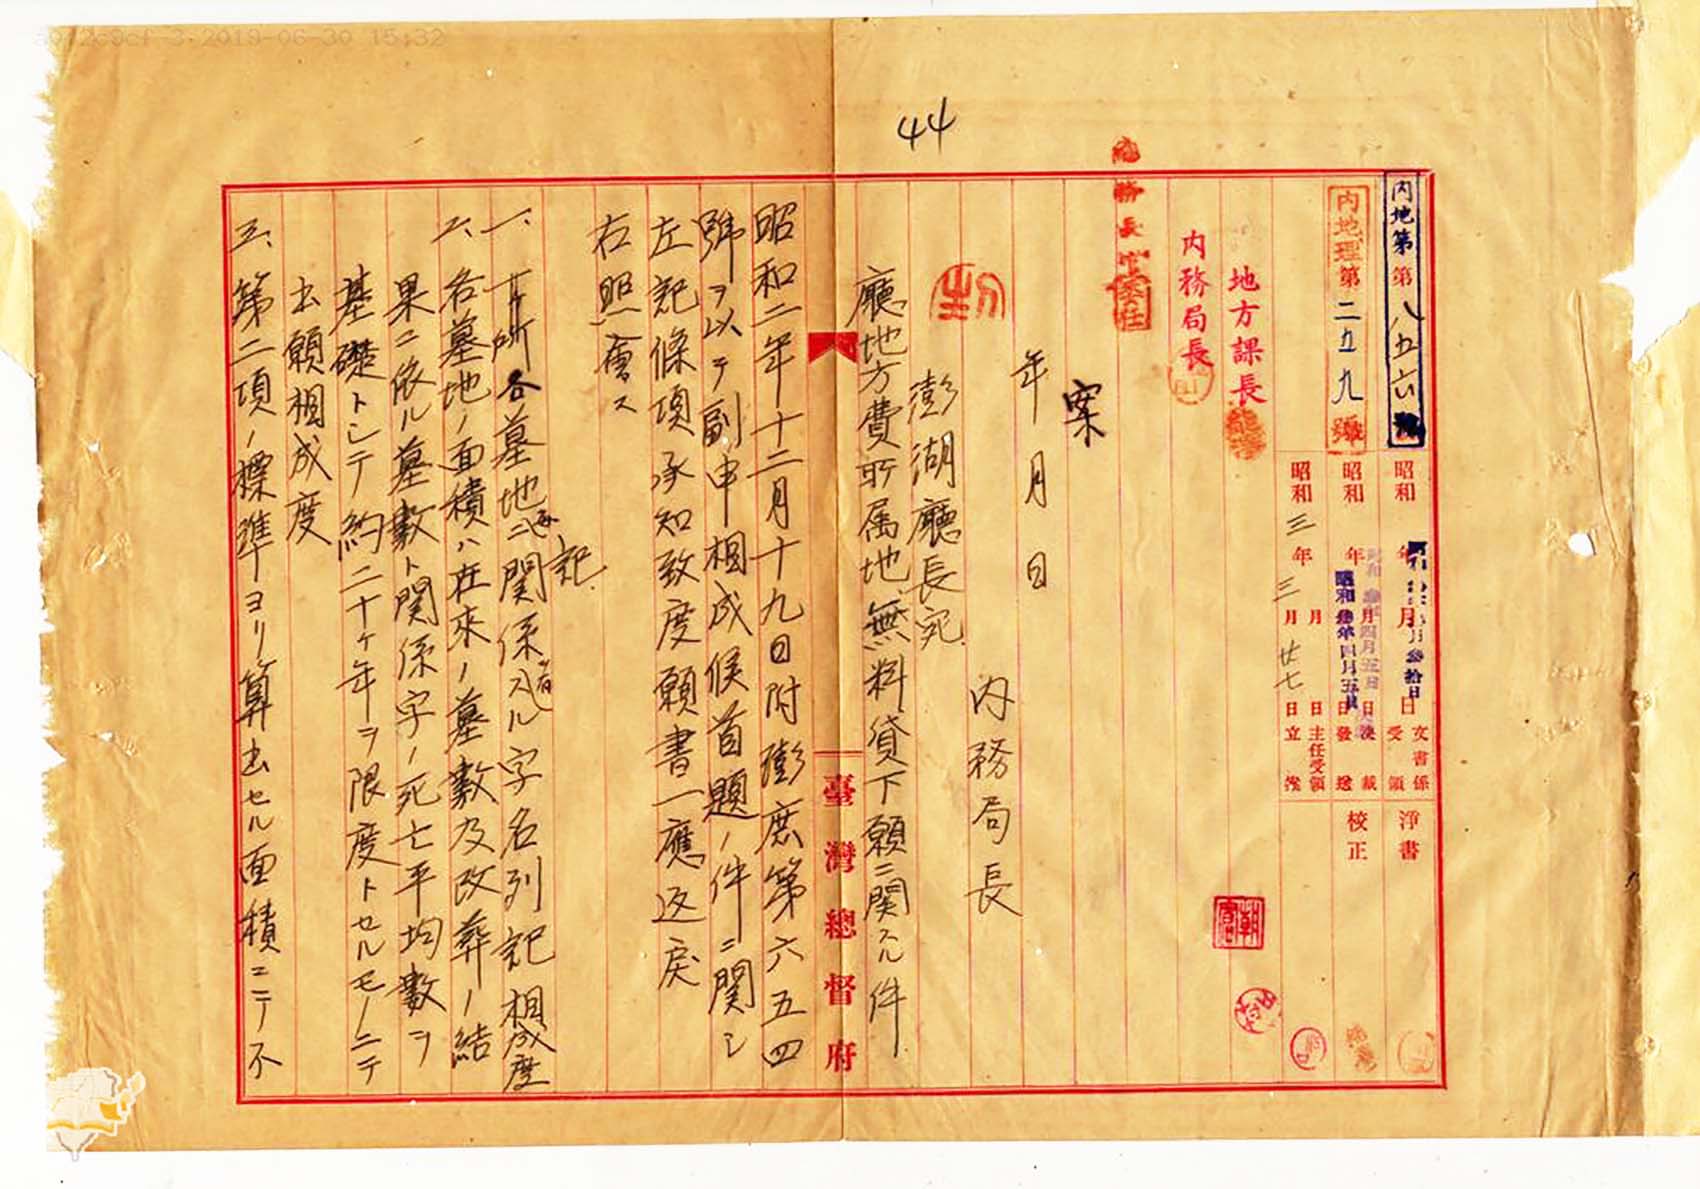 44
内地第 第八五六號
内地理第二五九號
昭和 年 月 日 文書係受領 淨書
昭和參年四月五日 決裁
昭和參年四月五日 發送 校正
月 日 主任受領
昭和三年三月廿七日立案
地方課長
内務局長
總務長官 委任
案
年 月 日
内務局長
澎湖廳長宛
廳地方費所属地無料貸下願ニ関スル件
臺灣總督府
昭和二年十二月十九日附澎庶第六五四
號ヲ以テ副申相成候首題ノ件ニ関シ
左記條項承知致度願書一應返戻
右照會ス
記
一、 各墓地ニ関係 ル字名列記相成度
二、各墓地ノ面積ハ在來ノ墓數及改葬ノ結
果ニ依ル墓數ト関係字ノ死亡平均數ヲ
基礎トシテ約二十ヶ年ヲ限度トセルモノニテ
出願相成度
三、第二項ノ標準ヨリ算出セル面積ニテ不